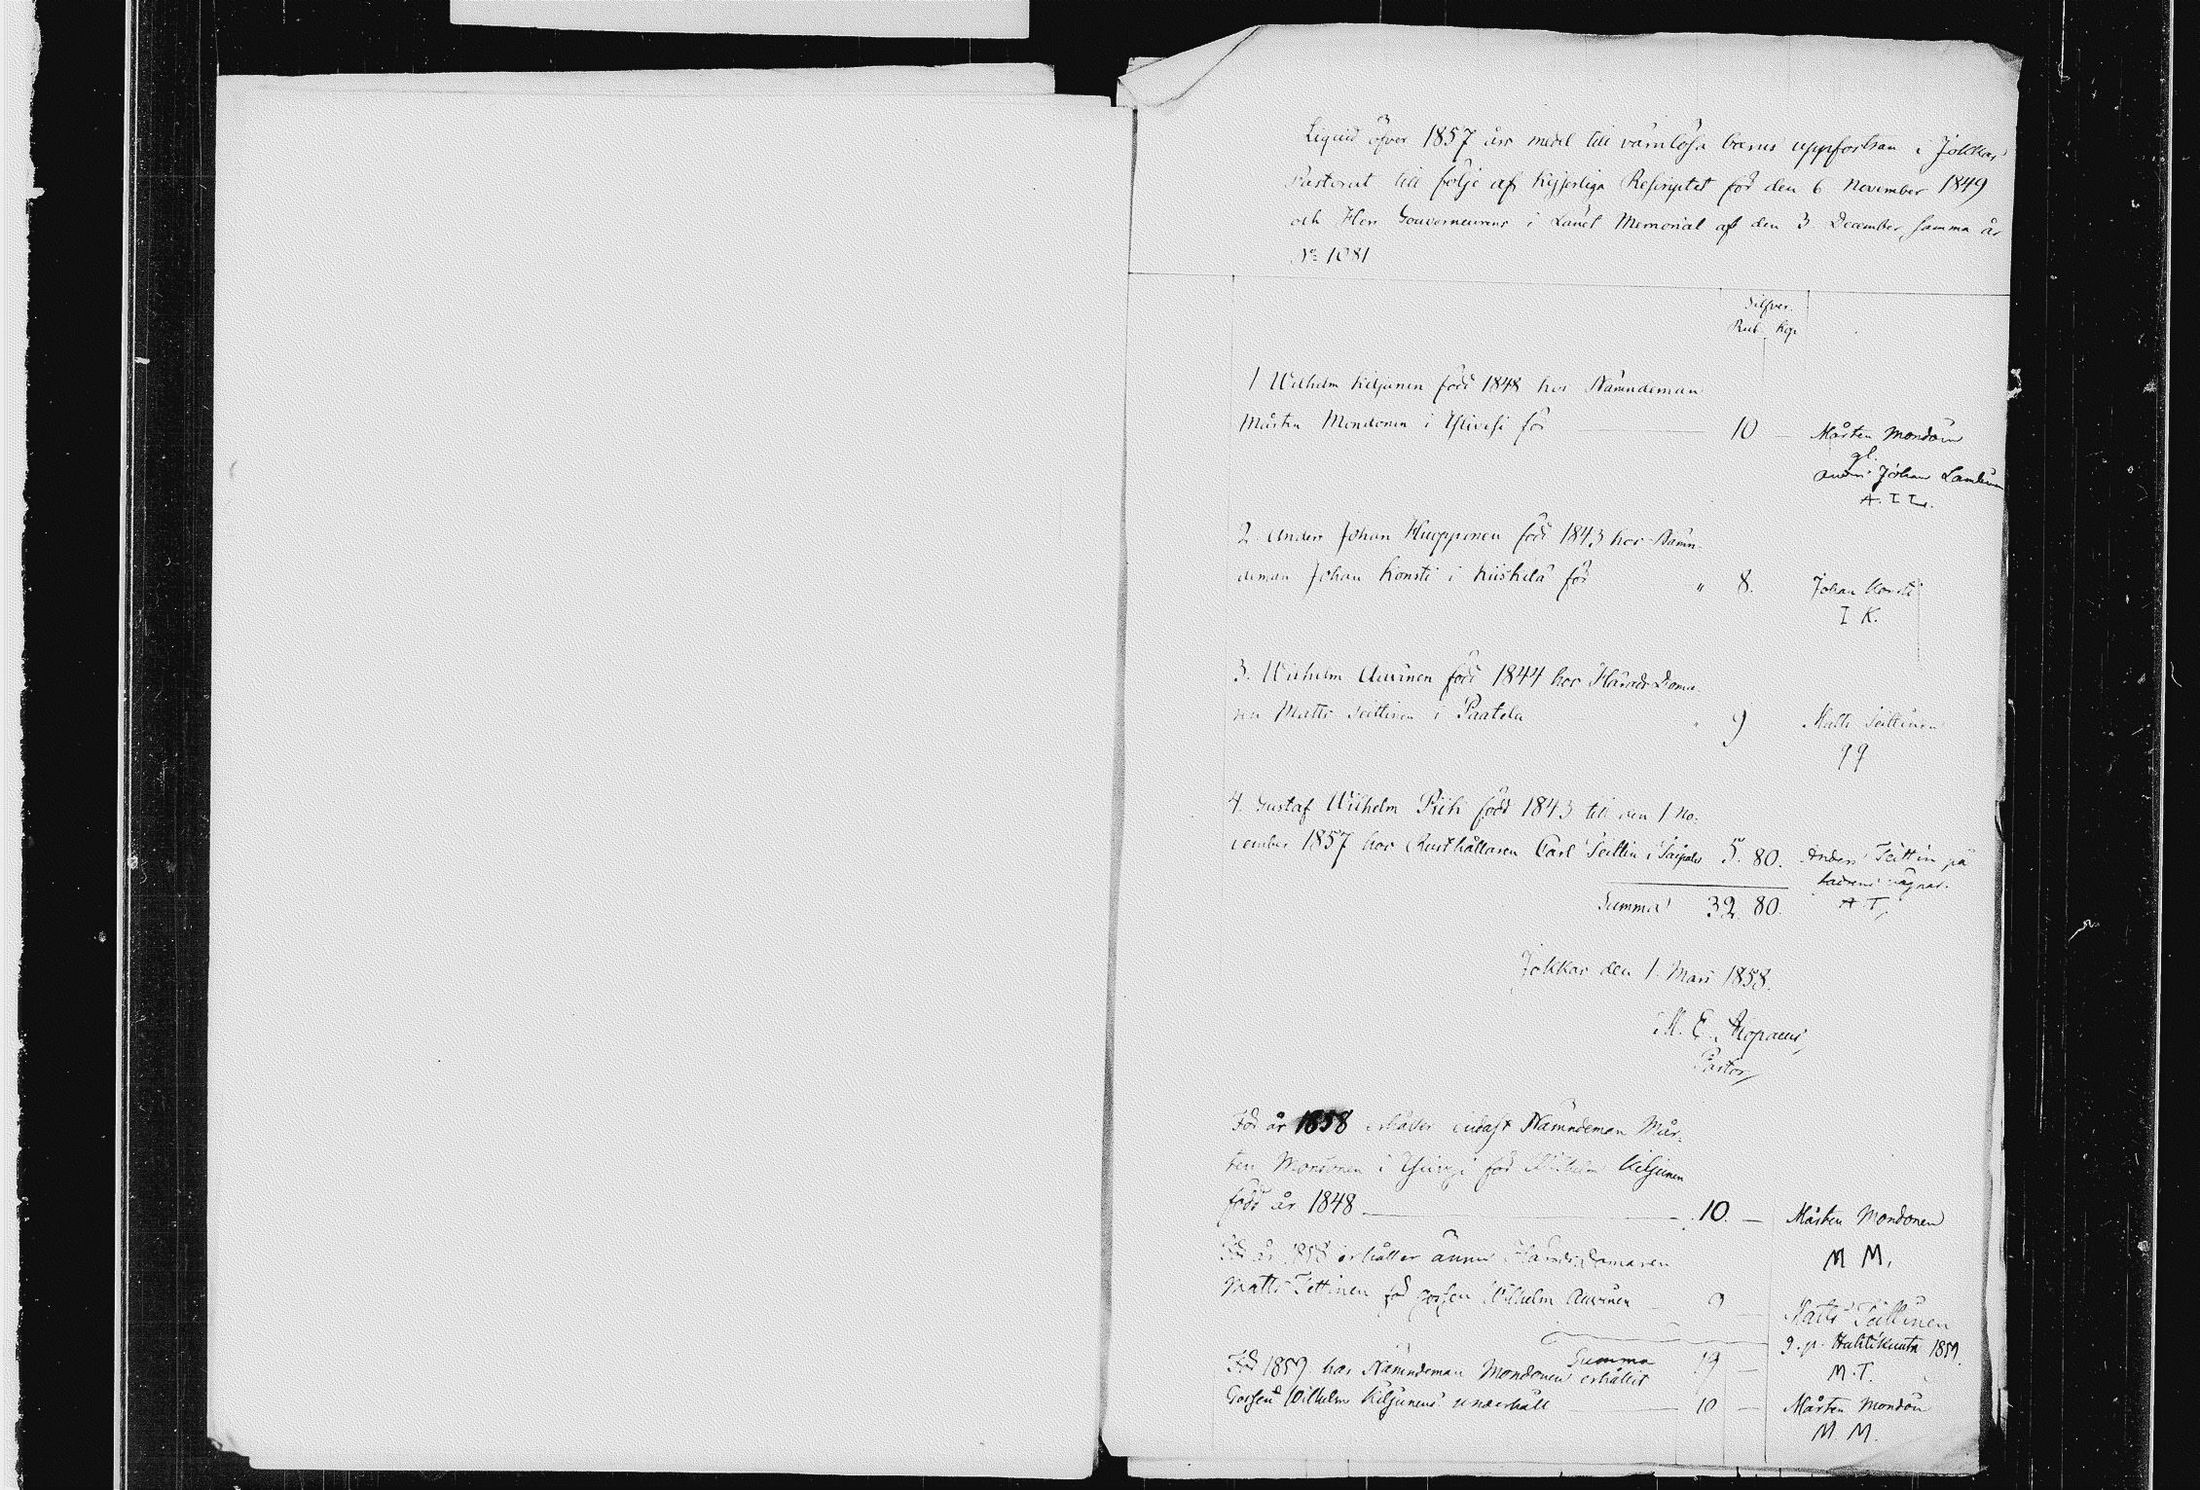 Liqvid öfver 1857 års medel till värnlösa barns uppfostran i Jokkas
Pastorat till följe af Kejserliga Rescriptet för den 6 November 1849
och Herr Gouverneurens i Länet Memorial af den 3 December samma år
No 1081
Silfver
Rub. Kop
1 Wilhelm Kiljunen född 1848 hos Nämndeman
Mårten Mondonen i för 10 — Mårten Mondoin
gl.
Johan
A. I L.
2. Anders Johan Huopponen född 1843 hos Nämn-
deman Johan Konsti i Kiiskilä för " 8. Johan Konsti
I K.
3. Wilhelm Auvinen född 1844 hos Härads Doma
ren Matts Teittinen i Paatela " 9 Matts Teittinen
4. Gustaf Wilhelm född 1843 till den 1 No-
vember 1857 hos Rusthållaren Carl Teittin i 5. 80. Anders Teittin på
vägnar.
Summa 32. 80. A T,
Jokkas den 1. Mars 1858.
M. E. Alopaeus,
Pastor,
För år 1858 erhåller endast Nämndeman Mår-
ten Mondonen i för Wilhelm Kiljunen
född år 1848 — 10. — Mårten Mondonen
M M.
För år 1858 erhåller ännu Härads Domaren
Matts Tettinen för gossen Wilhelm Auvinen — 9 — Matts Teittinen
9. p. Huhtikuuta 1859.
Summa 19 — M. T.
För 1859 har Nämndeman Mondonen erhållit
Gossen Wilhelm Kiljunens underhåll — 10 — Mårten Mondoin
M. M.